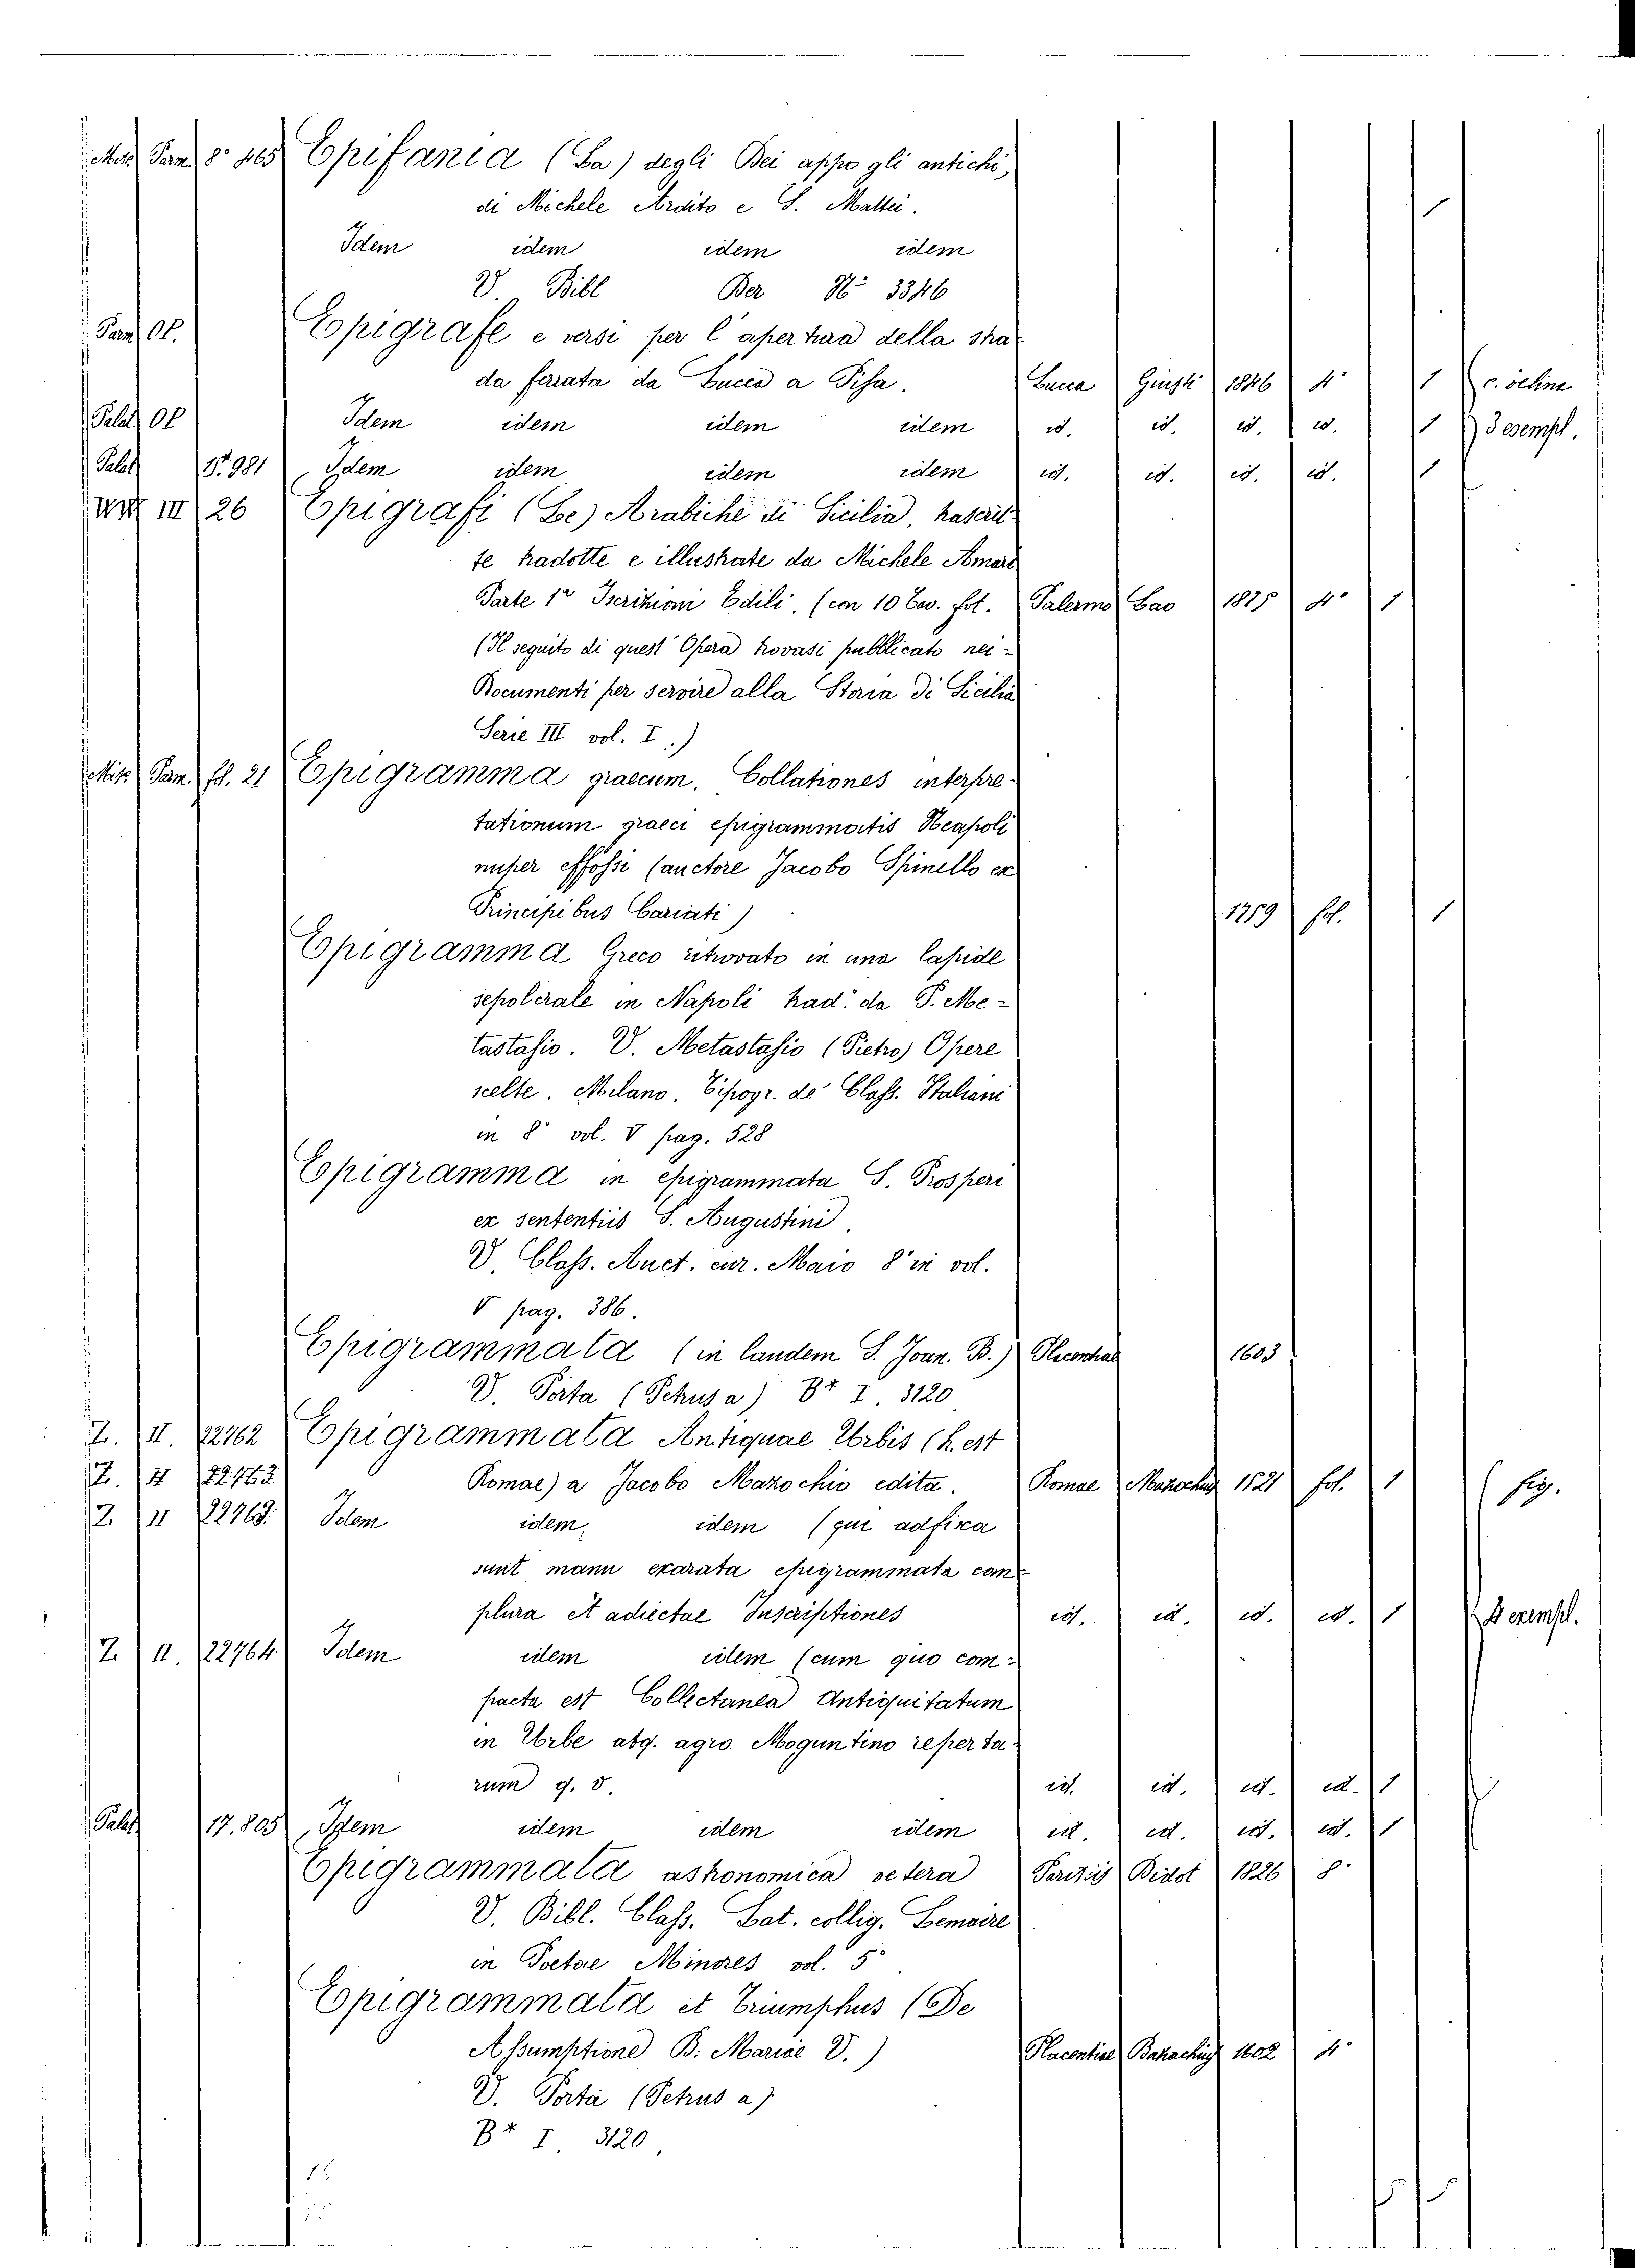 Misc. Parm. 8° 465 Epifania (La) degli Dei appo gli antichi,
di Michele Ardito e S. Mattei. 1
Idem idem idem idem
V. Bibl Ber N° 3346
Parm Op. Epigrafe e versi per l'apertura della stra
da ferrata da Lucca a Pisa. Lucca Giusti 1846 4° 1 c. velina
Palat Op Idem idem idem idem id. id. id. id. 1 3 esempl.
Palat 15.981 Idem idem idem idem id. id. id. id. 1
III 26 Epigrafi (Le) Arabiche di Sicilia, trascrit-
te tradotte e illustrate da Michele Amari
Parte 1ª Iscrizioni Edili. (con 10 tav. fot. Palermo Lao 1875 4° 1
(Il seguito di quest'Opera trovasi pubblicato nei-
Documenti per servire alla Storia di Sicilia
Serie III vol. I.)
Misc. Parm. fol. 21 Epigramma graecum. Collationes interpre-
tationum graeci epigrammatis Neapoli
nuper effossi (auctore Jacobo Spinello ex
Principibus Cariati) 1759 fol. 1
Epigramma Greco ritrovato in una lapide
sepolcrale in Napoli trad. da P. Me-
tastasio. V. Metastasio (Pietro) Opere
scelte. Milano. Tipogr. de' Class. Italiani
in 8° vol. V pag. 528
Epigramma in epigrammata S. Prosperi
ex sententiis S. Augustini.
V. Class. Auct. cur. Maio 8° in vol.
V pag. 386.
Epigrammata (in laudem S. Joan. B.) Placentiae 1603
V. Porta (Petrus a) B* I. 3120
Z. II. 22762 Epigrammata Antiquae Urbis (h. est
Z. II 22763 Romae) a Jacobo Mazochio edita. Romae Mazochius 1521 fol. 1 fig.
Z. II 22763. Idem idem, idem (qui adfixa
sunt manu exarata epigrammata com-
plura et adiectae Inscriptiones id. id. id. id. 1 4 exempl.
Z. II. 22764. Idem idem idem (cum quo com-
pacta est Collectanea Antiquitatum
in Urbe atq. agro Moguntino reperta-
rum q. v. id. id. id. id. 1
Palat 17.805 Idem idem idem idem id. id. id. id. 1
Epigrammata astronomica vetera Parisiis Didot 1826 8°
V. Bibl. Class. Lat. collig. Lemaire
in Poetae Minores vol. 5°
Epigrammata et Triumphus (De
Assumptione B. Mariae V.) Placentiae Bazachius 1602 4°
V. Porta (Petrus a)
B* I. 3120